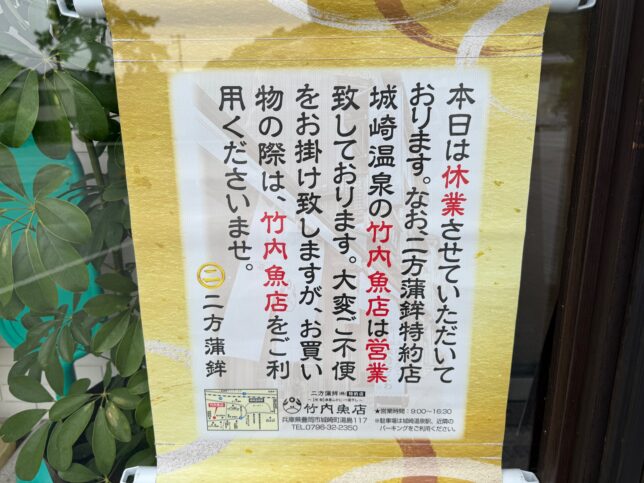 本日は休業させていただいて
おります。なお、二方蒲鉾特約店
城崎温泉の竹内魚店は営業
致しております。大変ご不便
をお掛け致しますが、お買い
物の際は、竹内魚店をご利
用くださいませ。
二 二方蒲鉾
二方蒲鉾㈱特約店
竹内魚店
兵庫県豊岡市城崎町湯島117
TEL.0796-32-2350
★営業時間:9:00〜16:30
※駐車場は城崎温泉駅、近隣の
パーキングをご利用ください。